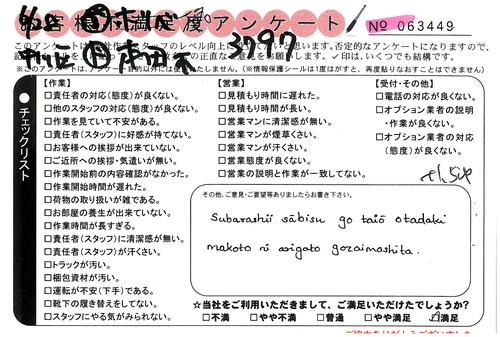 お客様不満足度アンケート
№ 063449
3797
この
※このアンケートは、アンケート目的以外には使用いたしません。(※情報保護シールは1度はがすと、再度貼りなおすことはできません)
チェックリスト
【作業】
□責任者の対応(態度)が良くない。
□他のスタッフの対応(態度)が良くない。
□作業を見ていて不安がある。
□責任者(スタッフ)に好感が持てない。
□お客様への挨拶が出来ていない。
□ご近所への挨拶・気遣いが無い。
□作業開始前の内容確認がなかった。
□作業開始時間が遅れた。
□荷物の取り扱いが雑である。
□お部屋の養生が出来ていない。
□作業時間が長すぎる。
□責任者(スタッフ)に清潔感が無い。
□責任者(スタッフ)が汗くさい。
□トラックが汚い。
□梱包資材が汚い。
□運転が不安(下手)である。
□靴下の履き替えをしてない。
□スタッフにやる気がみられない。
【営業】
□見積もり時間に遅れた。
□見積もり時間が長い。
□営業マンに清潔感が無い。
□営業マンが煙草くさい。
□営業マンが汗くさい。
□営業態度が良くない。
□営業の説明と作業が一致してない。
【受付・その他】
□電話の対応が良くない。
□オプション業者の説明
・作業が良くない。
□オプション業者の対応
(態度)が良くない。
その他、ご意見・ご要望等ありましたらお書き下さい。
Subarashii sābisu go taiō otadaki
makoto ni arigato gozaimashita.
☆当社をご利用いただきまして、ご満足いただけたでしょうか?
□不満 □やや不満 □普通 □やや満足 ☑満足